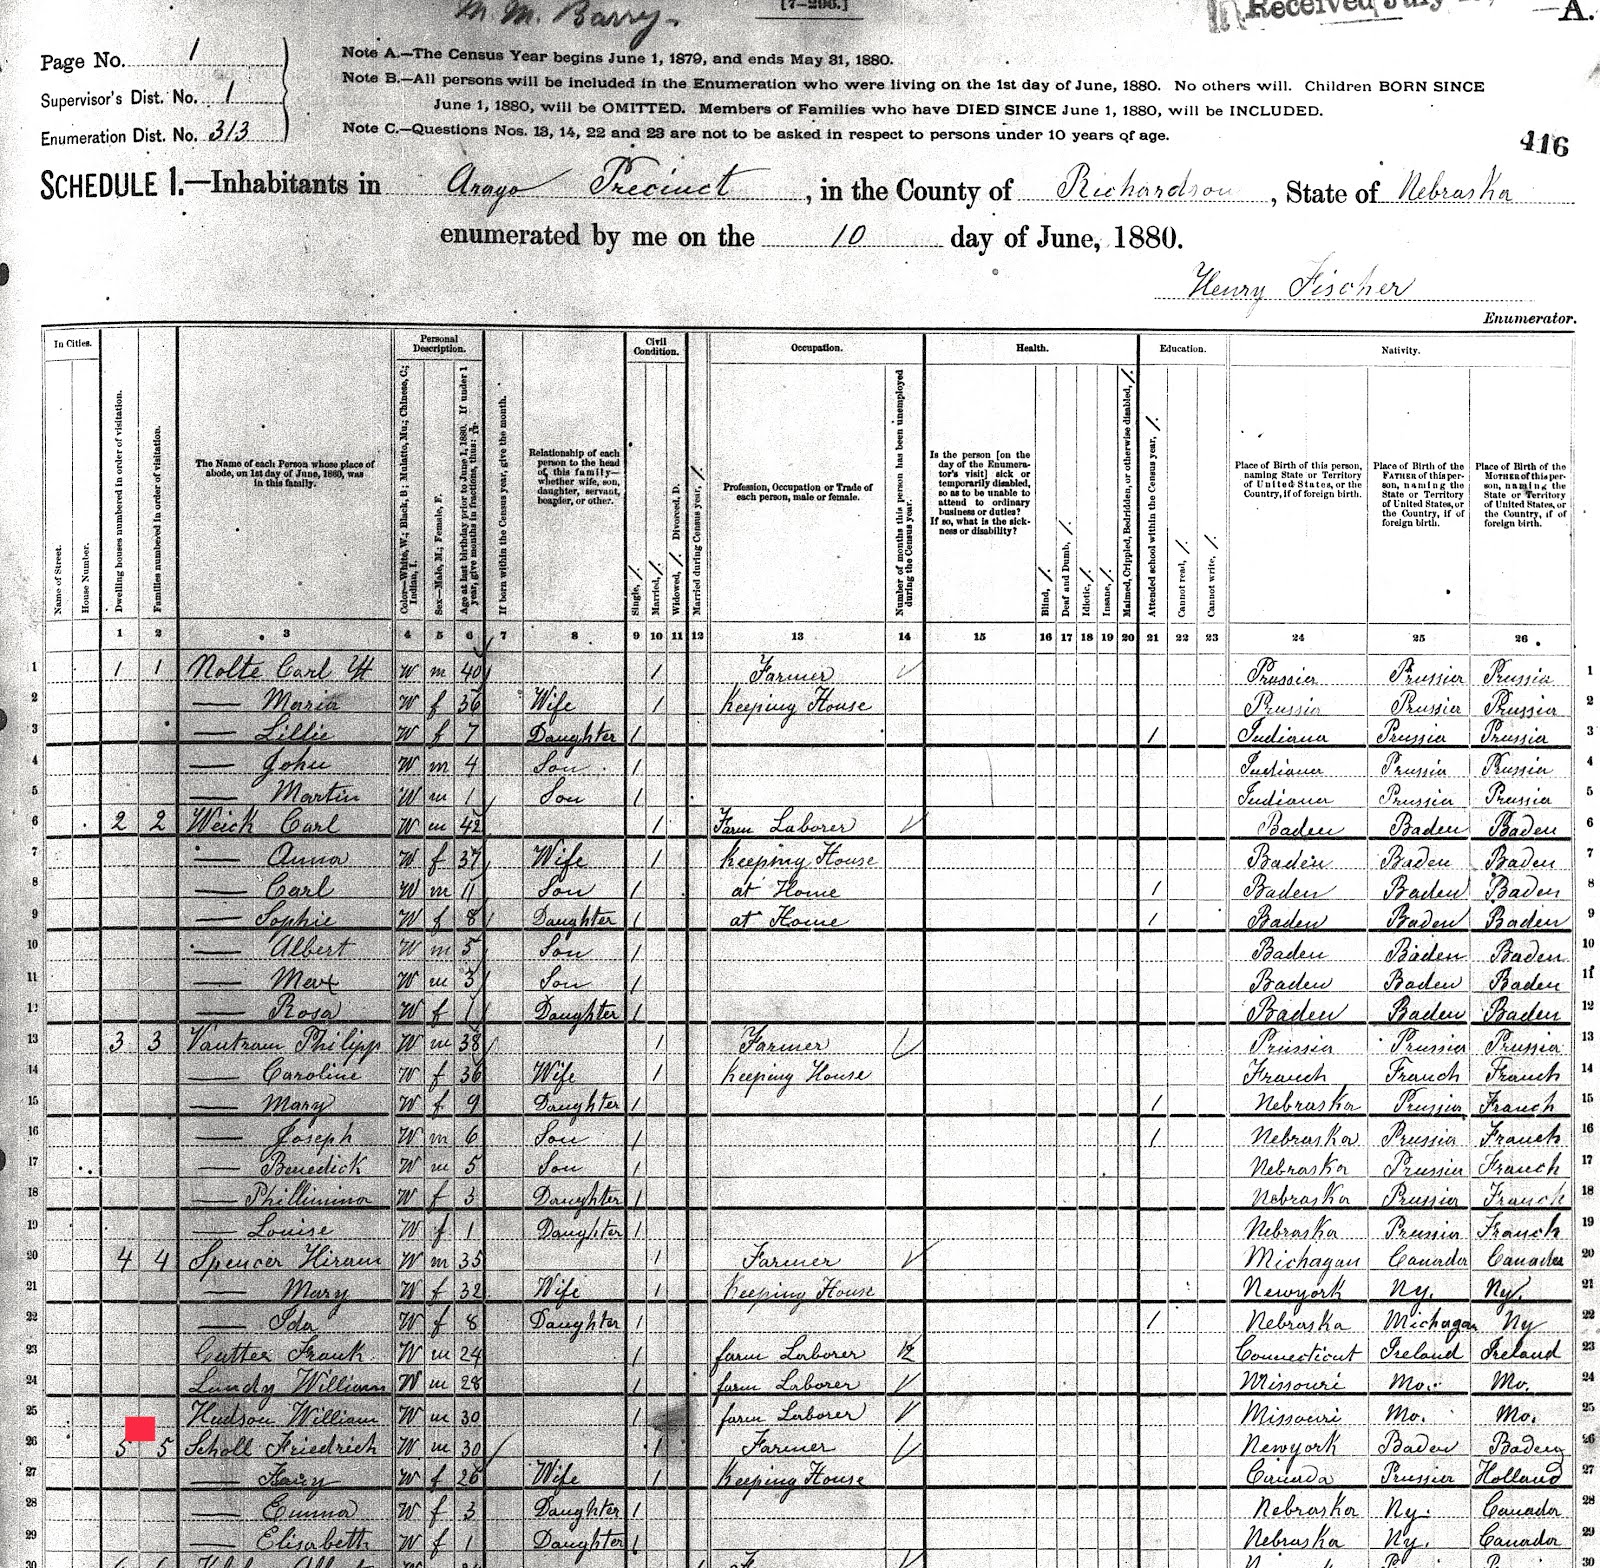 M. M. Barry.
[7-296.]
Received July
A.
Page No. 1
Supervisor's Dist. No. 1
Enumeration Dist. No. 313
Note A.—The Census Year begins June 1, 1879, and ends May 31, 1880.
Note B.—All persons will be included in the Enumeration who were living on the 1st day of June, 1880. No others will. Children BORN SINCE
June 1, 1880, will be OMITTED. Members of Families who have DIED SINCE June 1, 1880, will be INCLUDED.
Note C.—Questions Nos. 13, 14, 22 and 23 are not to be asked in respect to persons under 10 years of age.
416
SCHEDULE 1.—Inhabitants in Arago Precinct, in the County of Richardson, State of Nebraska
enumerated by me on the 10 day of June, 1880.
Henry Fischer
Enumerator.
In Cities. Personal Description. Civil Condition. Occupation. Health. Education. Nativity.
Name of Street.
House Number.
Dwelling houses numbered in order of visitation.
Families numbered in order of visitation.
The Name of each Person whose place of abode, on 1st day of June, 1880, was in this family.
Color—White, W.; Black, B.; Mulatto, Mu.; Chinese, C.; Indian, I.
Sex—Male, M.; Female, F.
Age at last birthday prior to June 1, 1880. If under 1 year, give months in fractions, thus:
If born within the Census year, give the month.
Relationship of each person to the head of this family—whether wife, son, daughter, servant, boarder, or other.
Single, /.
Married, /.
Widowed, /. Divorced, D.
Married during Census year, /.
Profession, Occupation or Trade of each person, male or female.
Number of months this person has been unemployed during the Census year.
Is the person [on the day of the Enumerator's visit] sick or temporarily disabled, so as to be unable to attend to ordinary business or duties? If so, what is the sickness or disability?
Blind, /.
Deaf and Dumb, /.
Idiotic, /.
Insane, /.
Maimed, Crippled, Bedridden, or otherwise disabled, /.
Attended school within the Census year, /.
Cannot read, /.
Cannot write, /.
Place of Birth of this person, naming State or Territory of United States, or the Country, if of foreign birth.
Place of Birth of the FATHER of this person, naming the State or Territory of United States, or the Country, if of foreign birth.
Place of Birth of the MOTHER of this person, naming the State or Territory of United States, or the Country, if of foreign birth.
1 2 3 4 5 6 7 8 9 10 11 12 13 14 15 16 17 18 19 20 21 22 23 24 25 26
1 1 1 Nolte Carl W m 40 / Farmer Prussia Prussia Prussia 1
2 — Maria W f 36 Wife / Keeping House Prussia Prussia Prussia 2
3 — Lillie W f 7 Daughter / / Indiana Prussia Prussia 3
4 — John W m 4 Son / Indiana Prussia Prussia 4
5 — Martin W m 1 Son / Indiana Prussia Prussia 5
6 2 2 Weick Carl W m 42 / Farm Laborer Baden Baden Baden 6
7 — Anna W f 37 Wife / Keeping House Baden Baden Baden 7
8 — Carl W m 11 Son / at Home / Baden Baden Baden 8
9 — Sophie W f 8 Daughter / at Home / Baden Baden Baden 9
10 — Albert W m 5 Son / Baden Baden Baden 10
11 — Max W m 3 Son / Baden Baden Baden 11
12 — Rosa W f 1 Daughter / Baden Baden Baden 12
13 3 3 Vautram Philipp W m 38 / Farmer Prussia Prussia Prussia 13
14 — Caroline W f 36 Wife / Keeping House Franch Franch Franch 14
15 — Mary W f 9 Daughter / / Nebraska Prussia Franch 15
16 — Joseph W m 6 Son / / Nebraska Prussia Franch 16
17 — Benedick W m 5 Son / Nebraska Prussia Franch 17
18 — Phillimina W f 3 Daughter / Nebraska Prussia Franch 18
19 — Louise W f 1 Daughter / Nebraska Prussia Franch 19
20 4 4 Spencer Hiram W m 35 / Farmer Michagan Canada Canada 20
21 — Mary W f 32 Wife / Keeping House Newyork Ny. Ny. 21
22 — Ida W f 8 Daughter / / Nebraska Michagan Ny 22
23 Cutter Frank W m 24 / farm Laborer 12 Connecticut Ireland Ireland 23
24 Lundy William W m 28 / farm Laborer Missouri Mo. Mo. 24
25 Hudson William W m 30 / farm Laborer Missouri Mo. Mo. 25
26 5 5 Scholl Friedrich W m 30 / Farmer Newyork Baden Baden 26
27 — W f 26 Wife / Keeping House Canada Prussia Holland 27
28 — Emma W f 3 Daughter / Nebraska Ny. Canada 28
29 — Elisabeth W f 1 Daughter / Nebraska Ny. Canada 29
30 30